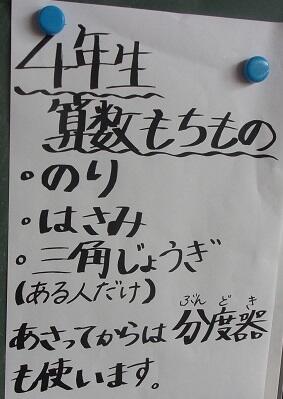 4年生
算数もちもの
・のり
・はさみ
・三角じょうぎ
(ある人だけ)
ぶんどき
あさってからは分度器
も使います。